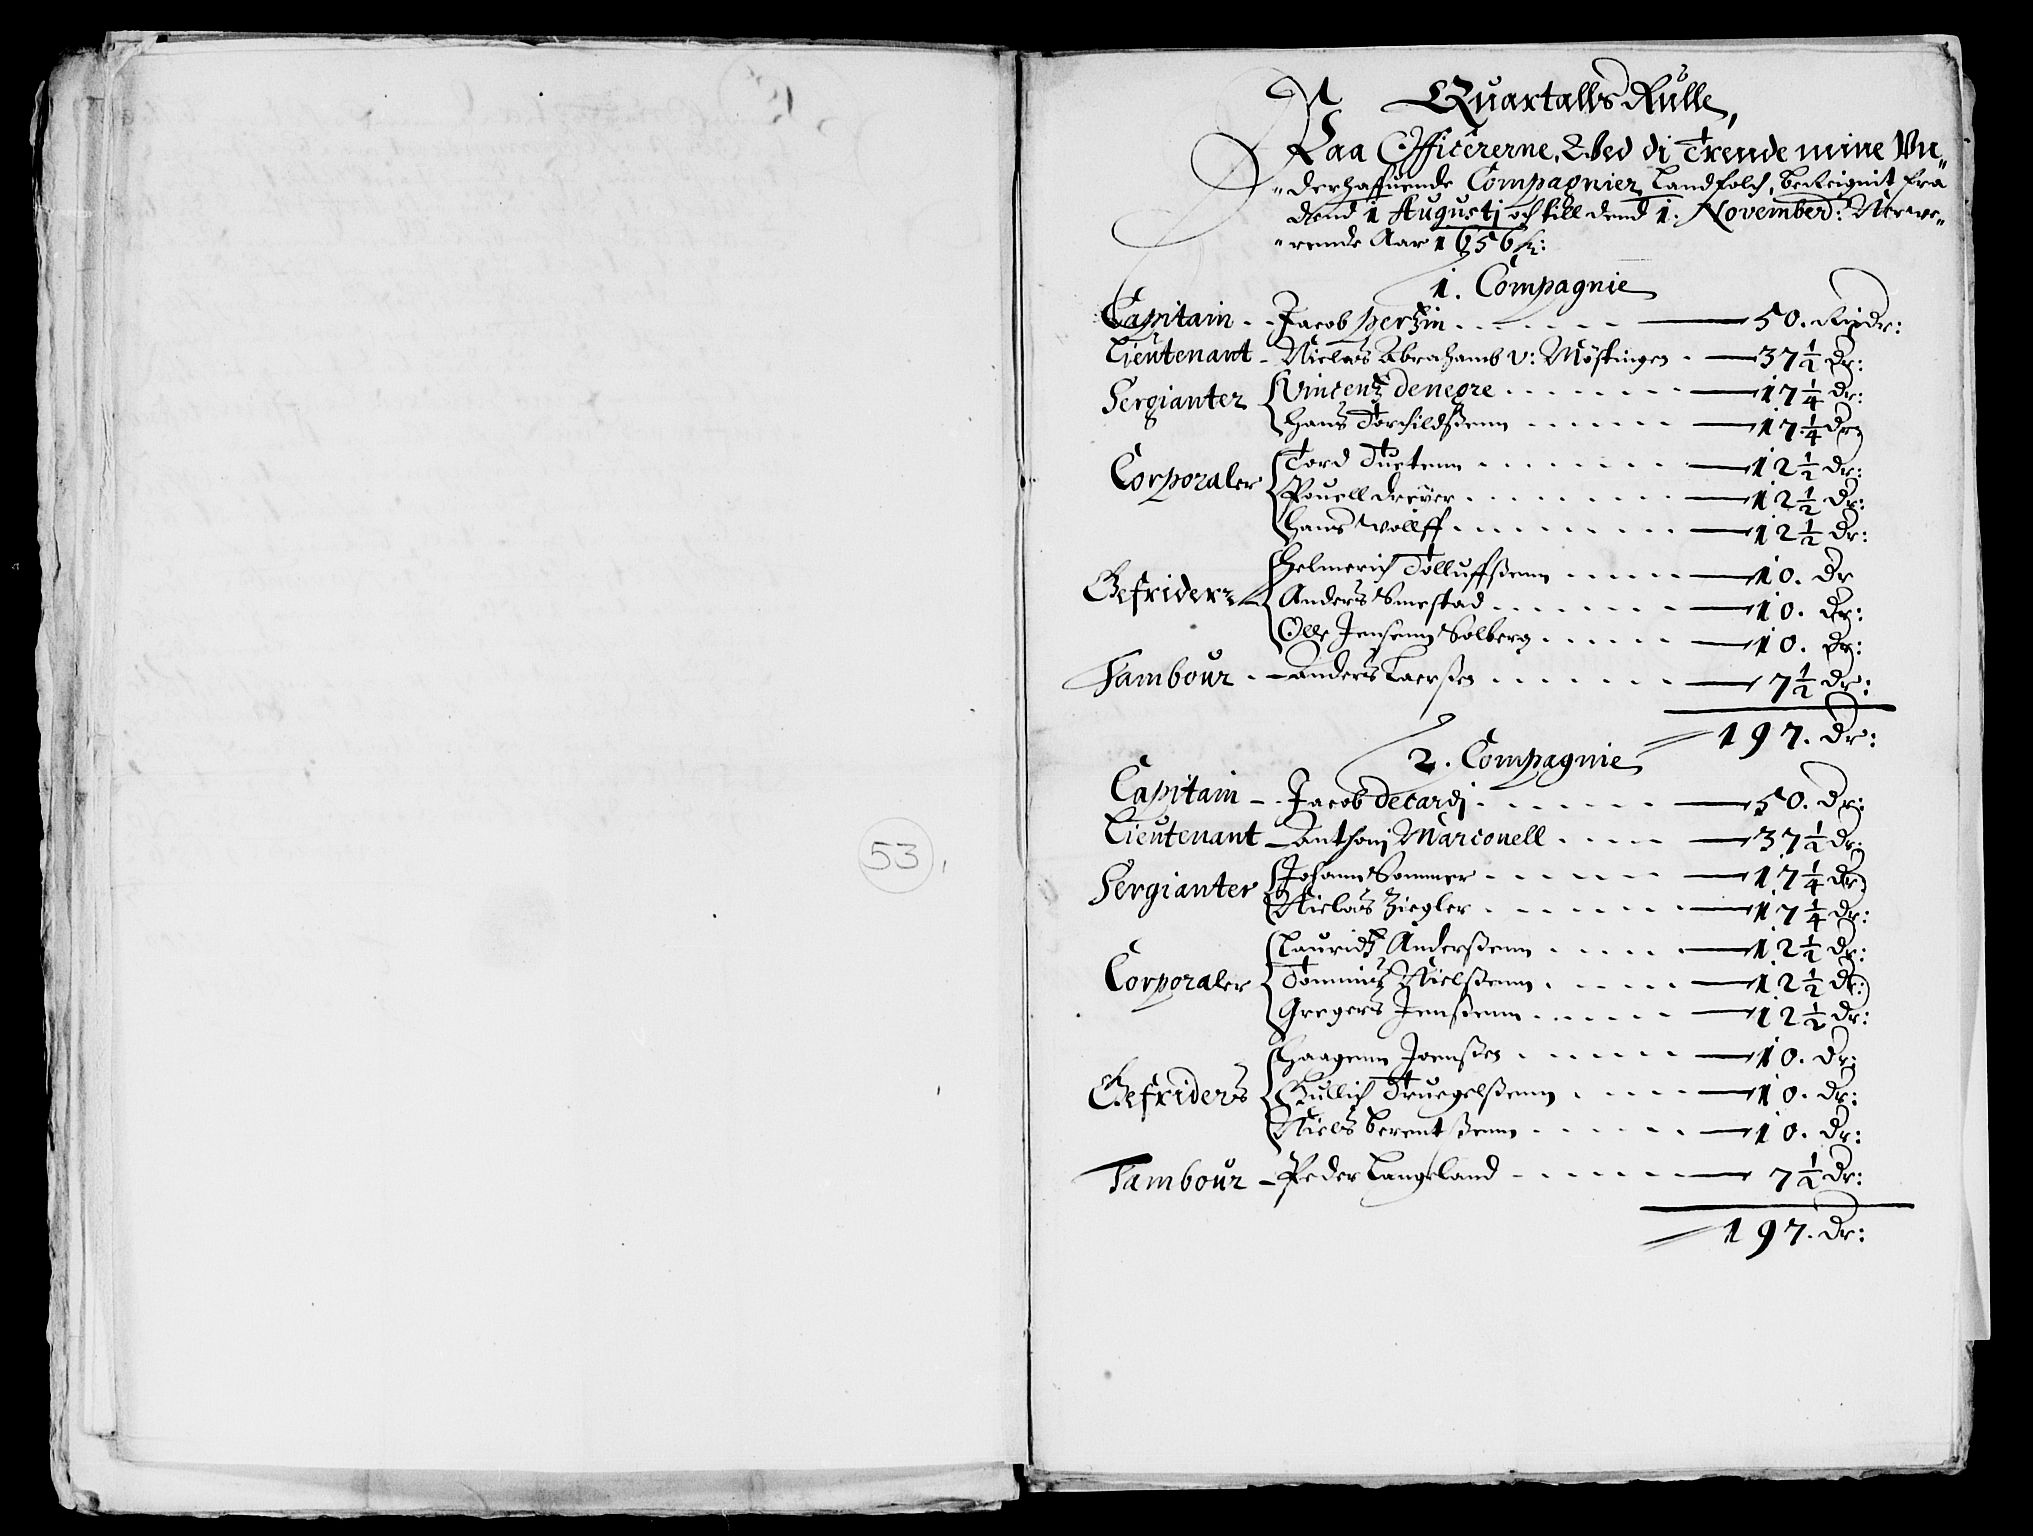 53
Quartalls Rulle,
Paa Officererne, Wed di Trende mine Vn-
derhaffuende Compagnier Landfolch, bereignit fra
dend 1 Augustj och till dend 1. November: Nerwe-
rende Aar 1656
1. Compagnie
Capitain - Jacob pertzin - 50. Rixdr:
Lieutenant - Niclaus Abrahamb v: Möstingen - 37½ dr:
Sergianter Vincentz denegre - 17¼ dr:
Hans Torchildßenn - 17¼ dr:
Corporaler Tord Tuetenn - 12½ dr:
Pouell dreyer - 12½ dr:
Hans Wollff - 12½ dr:
Gefrider Helmerich Tolluffßenn - 10. dr
Anders Smestad - 10. dr:
Olle Jensenn Solberg - 10. dr:
Tambour - Anders Laerßen - 7½ dr:
197. dr:
2. Compagnie
Capitain - Jacob decardj - 50. dr:
Lieutenant - Anthonj Marconell - 37½ dr:
Sergianter Johann Sommer - 17¼ dr:
Niclas Ziegler - 17¼ dr:
Corporaler Lauridtz Anderßenn - 12½ dr:
Tommis Nielßenn - 12½ dr:
Gregers Jenßenn - 12½ dr:
Gefriders Haagenn Joenßen - 10. dr:
Gullich Truegelßenn - 10. dr:
Niels berentßenn - 10. dr:
Tambour - Peder Langeland - 7½ dr:
197. dr: